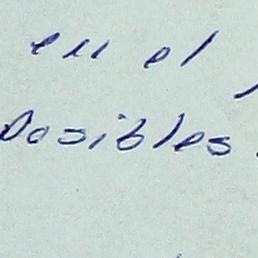 en el
posibles.